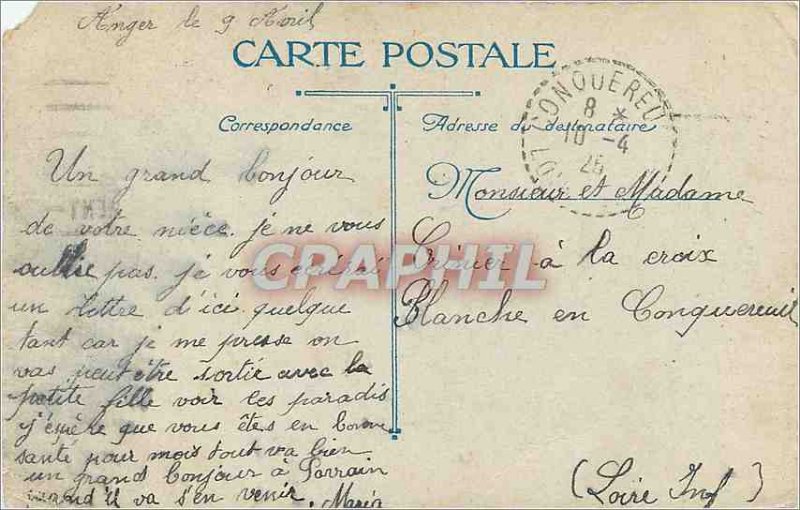 Anger le 9 Avril
CARTE POSTALE
Correspondance
Un grand bonjour
de votre nièce je ne vous
oublie pas je vous écrirai
un lettre d'ici quelque
tant car je me presse on
vas peut être sortir avec la
petite fille voir les paradis
j'éspère que vous êtes en bonne
santé pour mois tout va bien
un grand bonjour à
quand'il va s'en venir. Maria
Adresse du destinataire
CONQUEREU
8 *
10 -4
25
Monsieur et Madame
à la croix
Blanche en Conquereuil
(Loire Inf)
CRAPHIL